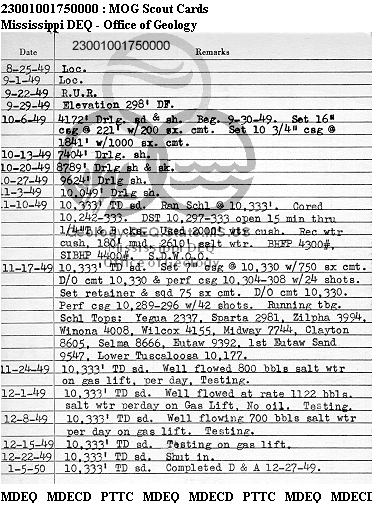 23001001750000 : MOG Scout Cards
Mississippi DEQ - Office of Geology
23001001750000
Date Remarks
8-25-49 Loc.
9-1-49 Loc.
9-22-49 R.U.R.
9-29-49 Elevation 298' DF.
10-6-49 4172' Drlg. sd & sh. Beg. 9-30-49. Set 16"
csg @ 221' w/200 sx. cmt. Set 10 3/4" csg @
1841' w/1000 sx. cmt.
10-13-49 7404' Drlg. sh.
10-20-49 8789' Drlg sh & sk.
0-27-49 9624' Drlg sh.
1-3-49 10,049' Drlg sh.
1-10-49 10,333' TD sd. Ran Schl @ 10,333'. Cored
10,242-333. DST 10,297-333 open 15 min thru
1/4"T & B cks. Used 2000' wtr cush. Rec wtr
cush, 180' mud, 2610' salt wtr. BHFP 4300#,
SIBHP 4400#. S.D.W.O.O.
11-17-49 10,333' TD sd. Set 7" csg @ 10,330 w/750 sx cmt.
D/O cmt 10,330 & perf csg 10,304-308 w/24 shots.
Set retainer & sqd 75 sx cmt. D/O cmt 10,330.
Perf csg 10,289-296 w/42 shots. Running tbg.
Schl Tops: Yegua 2337, Sparta 2981, Zilpha 3994,
Winona 4008, Wilcox 4155, Midway 7744, Clayton
8605, Selma 8666, Eutaw 9392, 1st Eutaw Sand
9547, Lower Tuscaloosa 10,177.
11-24-49 10,333' TD sd. Well flowed 800 bbls salt wtr
on gas lift, per day, Testing.
12-1-49 10,333' TD sd. Well flowed at rate 1122 bbls.
salt wtr perday on Gas Lift. No oil. Testing.
12-8-49 10,333' TD sd. Well flowing 700 bbls salt wtr
per day on gas lift. Testing.
12-15-49 10,333' TD sd. Testing on gas lift.
12-22-49 10,333' TD sd. Shut in.
1-5-50 10,333' TD sd. Completed D & A 12-27-49.
MDEQ MDECD PTTC MDEQ MDECD PTTC MDEQ MDECD